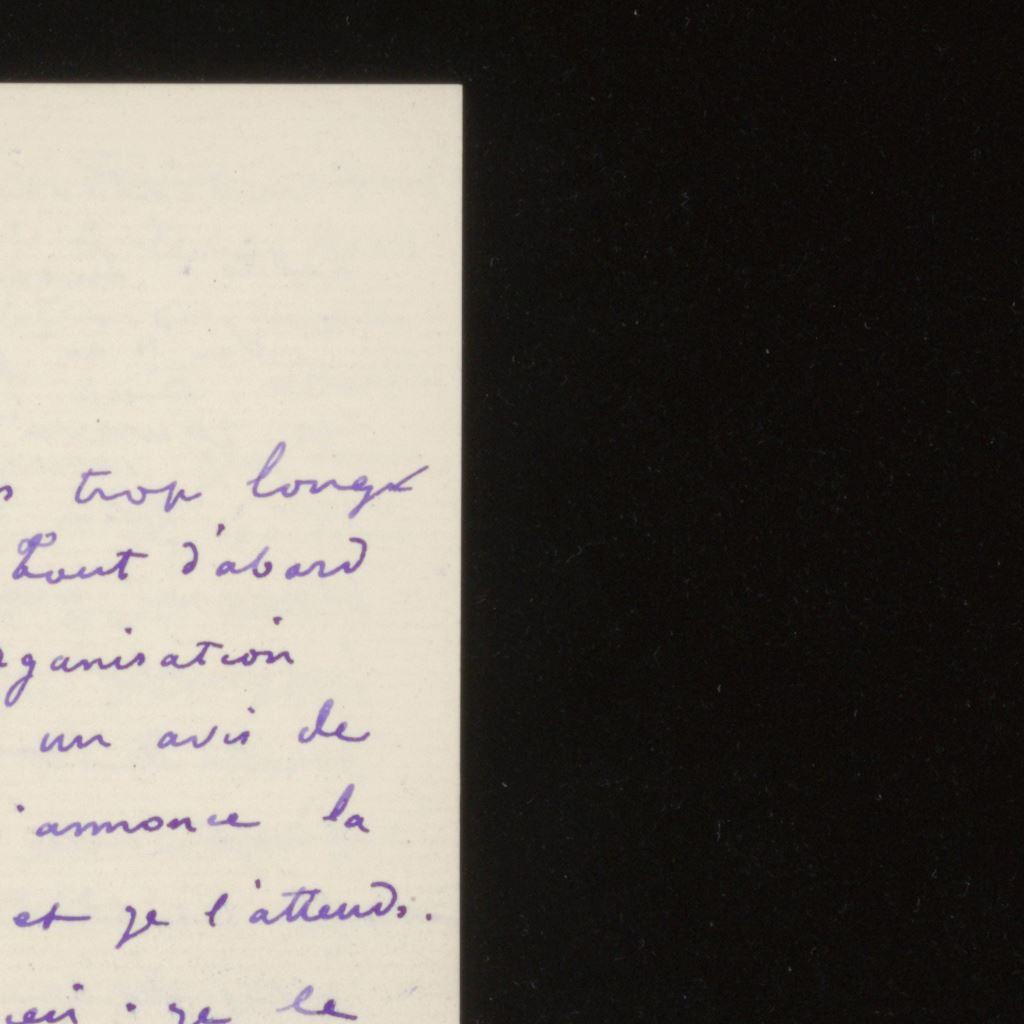 trop long
Tout d'abord
rganisation
un avis de
'annonce la
et je l'attends.
je le